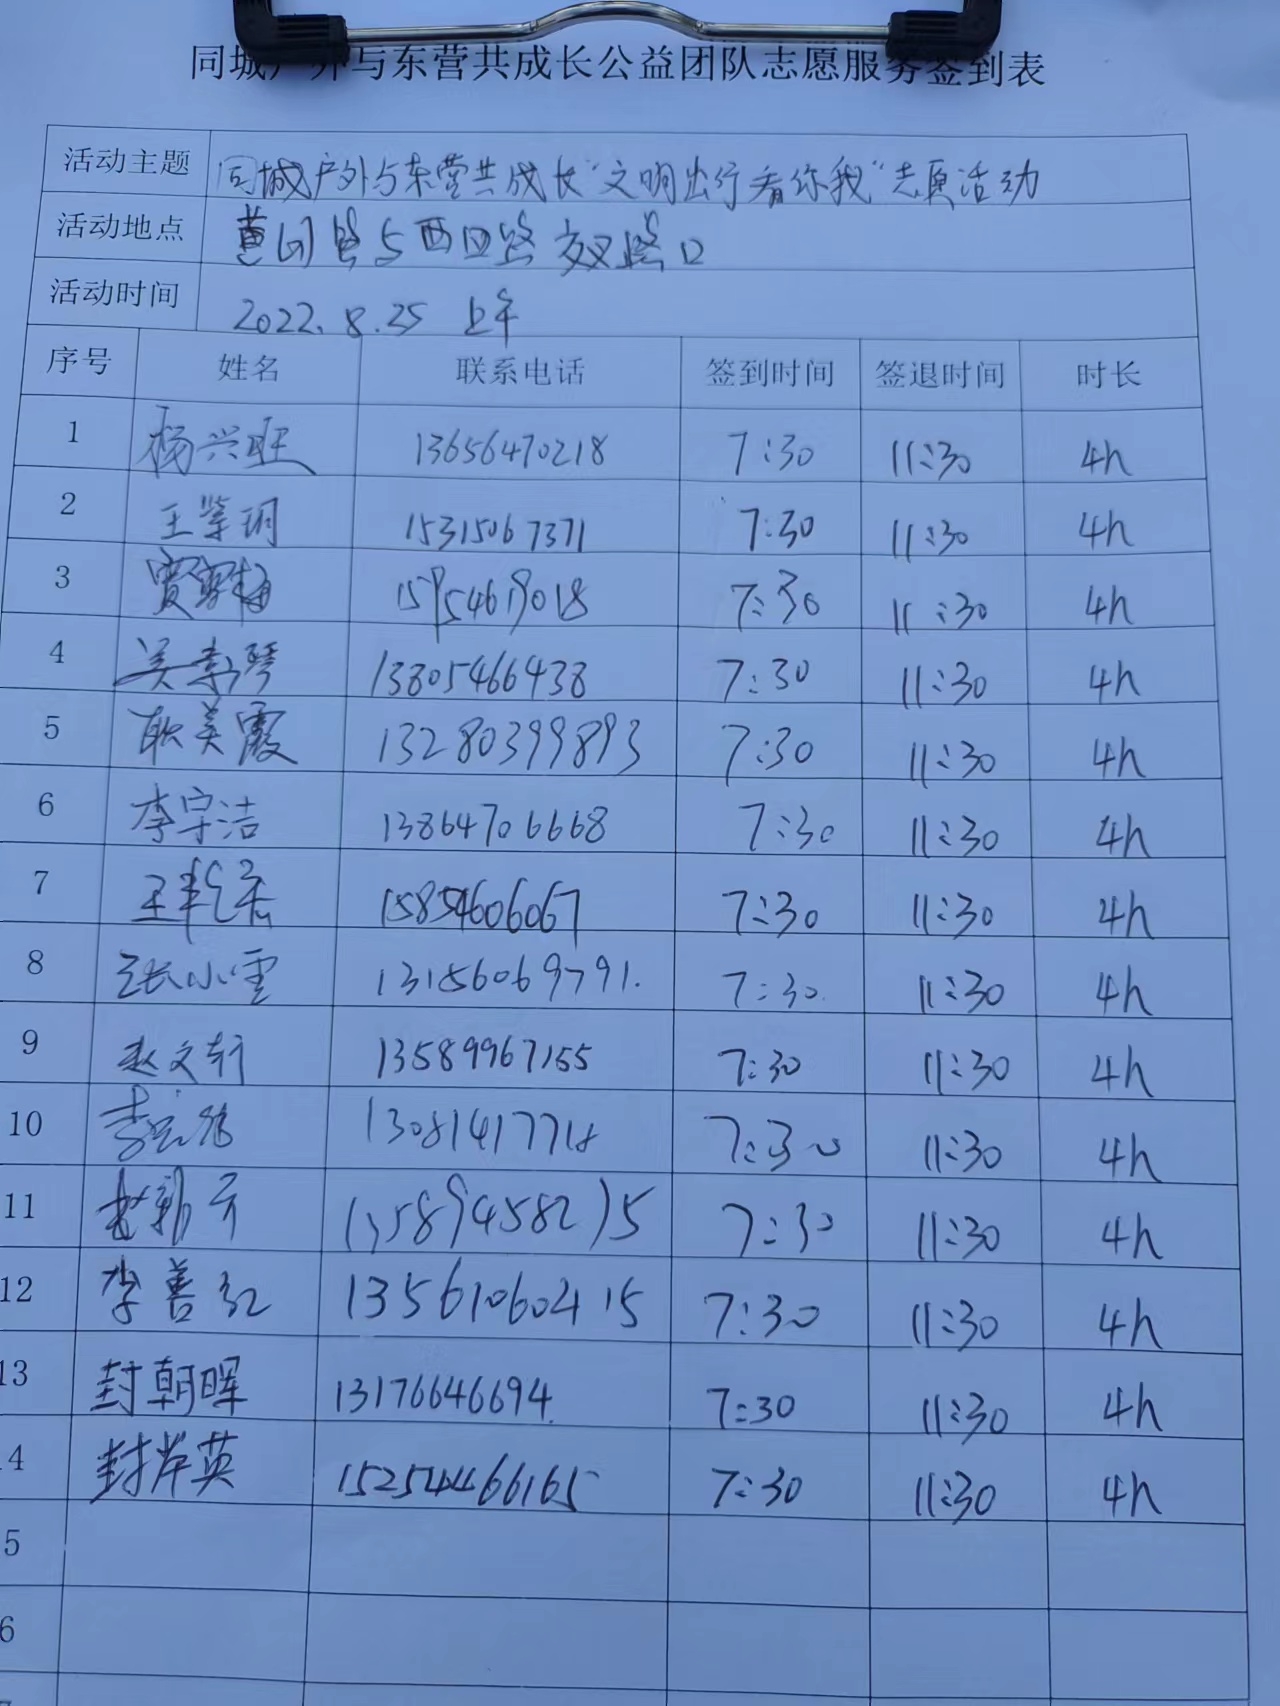 同城户外与东营共成长公益团队志愿服务签到表
活动主题 同城户外与东营共成长“文明出行看你我”志愿活动
活动地点 路与西四路交叉路口
活动时间 2022.8.25 上午
序号 姓名 联系电话 签到时间 签退时间 时长
1 杨兴旺 13656470218 7:30 11:30 4h
2 王 15315067371 7:30 11:30 4h
3 贾 15954619018 7:30 11:30 4h
4 吴 琴 13805466438 7:30 11:30 4h
5 耿美霞 13280399893 7:30 11:30 4h
6 李宇洁 13864706668 7:30 11:30 4h
7 王 15854606067 7:30 11:30 4h
8 张小雪 13156069791. 7:30 11:30 4h
9 赵文轩 13589967155 7:30 11:30 4h
10 李 7:30 11:30 4h
11 赵 13589458275 7:30 11:30 4h
12 李善红 13561060415 7:30 11:30 4h
13 封朝晖 13176646694 7:30 11:30 4h
4 封岸英 15254466165 7:30 11:30 4h
5
6